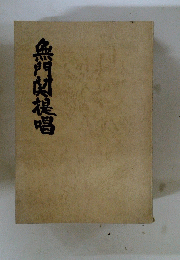 無門関提唱